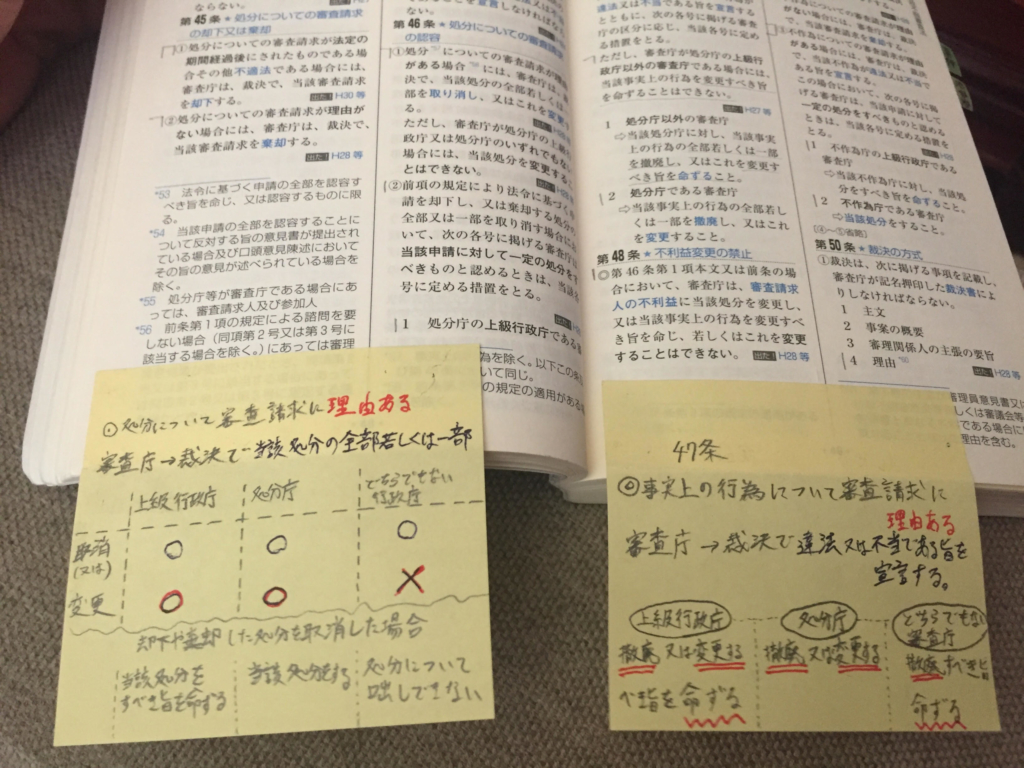 ならない。
第45条★処分についての審査請求
の却下又は棄却
①処分についての審査請求が法定の
期間経過後にされたものである場
合その他不適法である場合には、
審査庁は、裁決で、当該審査請求
を却下する。 出た!H30等
②処分についての審査請求が理由が
ない場合には、審査庁は、裁決で、
当該審査請求を棄却する。
出た!H28等
*53 法令に基づく申請の全部を認容す
べき旨を命じ、又は認容するものに限
る。
*54 当該申請の全部を認容することに
ついて反対する旨の意見書が提出され
ている場合及び口頭意見陳述において
その旨の意見が述べられている場合を
除く。
*55 処分庁等が審査庁である場合にあ
っては、審査請求人及び参加人
*56 前条第1項の規定による諮問を要
しない場合(同項第2号又は第3号に
該当する場合を除く。)にあっては審理
第46条★処分についての審査請求
の認容
①処分についての審査請求が理由
がある場合には、審査庁は、裁
決で、当該処分の全部若しくは一
部を取り消し、又はこれを変更する。
ただし、審査庁が処分庁の上級行
政庁又は処分庁のいずれでもない
場合には、当該処分を変更するこ
とはできない。
②前項の規定により法令に基づく申
請を却下し、又は棄却する処分の
全部又は一部を取り消す場合にお
いて、次の各号に掲げる審査庁
当該申請に対して一定の処分をす
べきものと認めるときは、当該各
号に定める措置をとる。
1 処分庁の上級行政庁である審
為を除く。以下この
いて同じ。
の規定の適用がある
違法又は不当である旨を宣言する
とともに、次の各号に掲げる審査
庁の区分に応じ、当該各号に定め
る措置をとる。
ただし、審査庁が処分庁の上級行
政庁以外の審査庁である場合には、
当該事実上の行為を変更すべき旨
を命ずることはできない。
出た!H27等
1 処分庁以外の審査庁
⇨当該処分庁に対し、当該事実
上の行為の全部若しくは一部
を撤廃し、又はこれを変更す
べき旨を命ずること。
2 処分庁である審査庁
⇨当該事実上の行為の全部若し
くは一部を撤廃し、又はこれ
を変更すること。
第48条★不利益変更の禁止
◎第46条第1項本文又は前条の場
合において、審査庁は、審査請求
人の不利益に当該処分を変更し、
又は当該事実上の行為を変更すべ
き旨を命じ、若しくはこれを変更
することはできない。 出た!H28等
ない場合には、審査庁は、裁決
で、当該審査請求を棄却する。
不作為についての審査請求が理由
がある場合には、審査庁は、裁決
で、当該不作為が違法又は不当で
ある旨を宣言する。
において、次の各号に掲
げる審査庁は、当該申請に対して
一定の処分をすべきものと認める
ときは、当該各号に定める措置を
とる。
1 不作為庁の上級行政庁である
審査庁
⇨当該不作為庁に対し、当該処
分をすべき旨を命ずること。
2 不作為庁である審査庁
⇨当該処分をすること。
(④~⑤省略)
第50条★裁決の方式
①裁決は、次に掲げる事項を記載し、
審査庁が記名押印した裁決書によ
りしなければならない。
1 主文
2 事案の概要
3 審理関係人の主張の要旨
4 理由
出た!H28等
①処分について審査請求に理由ある
審査庁→裁決で当該処分の全部若しくは一部
上級行政庁 処分庁 どちらでもない行政庁
取消 ○ ○ ○
(又は)
変更 ○ ○ ×
却下や棄却した処分を取消した場合
当該処分をすべき旨を命ずる
当該処分をする
処分について口出しできない
47条
◎事実上の行為について審査請求に
理由ある
審査庁→裁決で違法又は不当である旨を
宣言する。
上級行政庁 処分庁 どちらでもない審査庁
撤廃又は変更するべき旨を命ずる
撤廃又は変更する
撤廃すべき旨命ずる